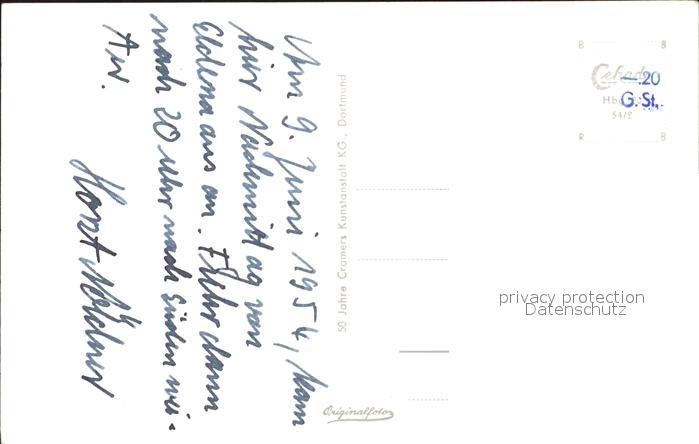 Am 9. Juni 1954, kam
hier Nachmittag von
Eldena aus an. Fuhr dann
nach 20 Uhr nach Süden wei-
Horst
50 Jahre Cramers Kunstanstalt KG., Dortmund
Originalfoto
B B
Cekade
Hbg
54/2
R B
—.20
G.St.
privacy protection
Datenschutz